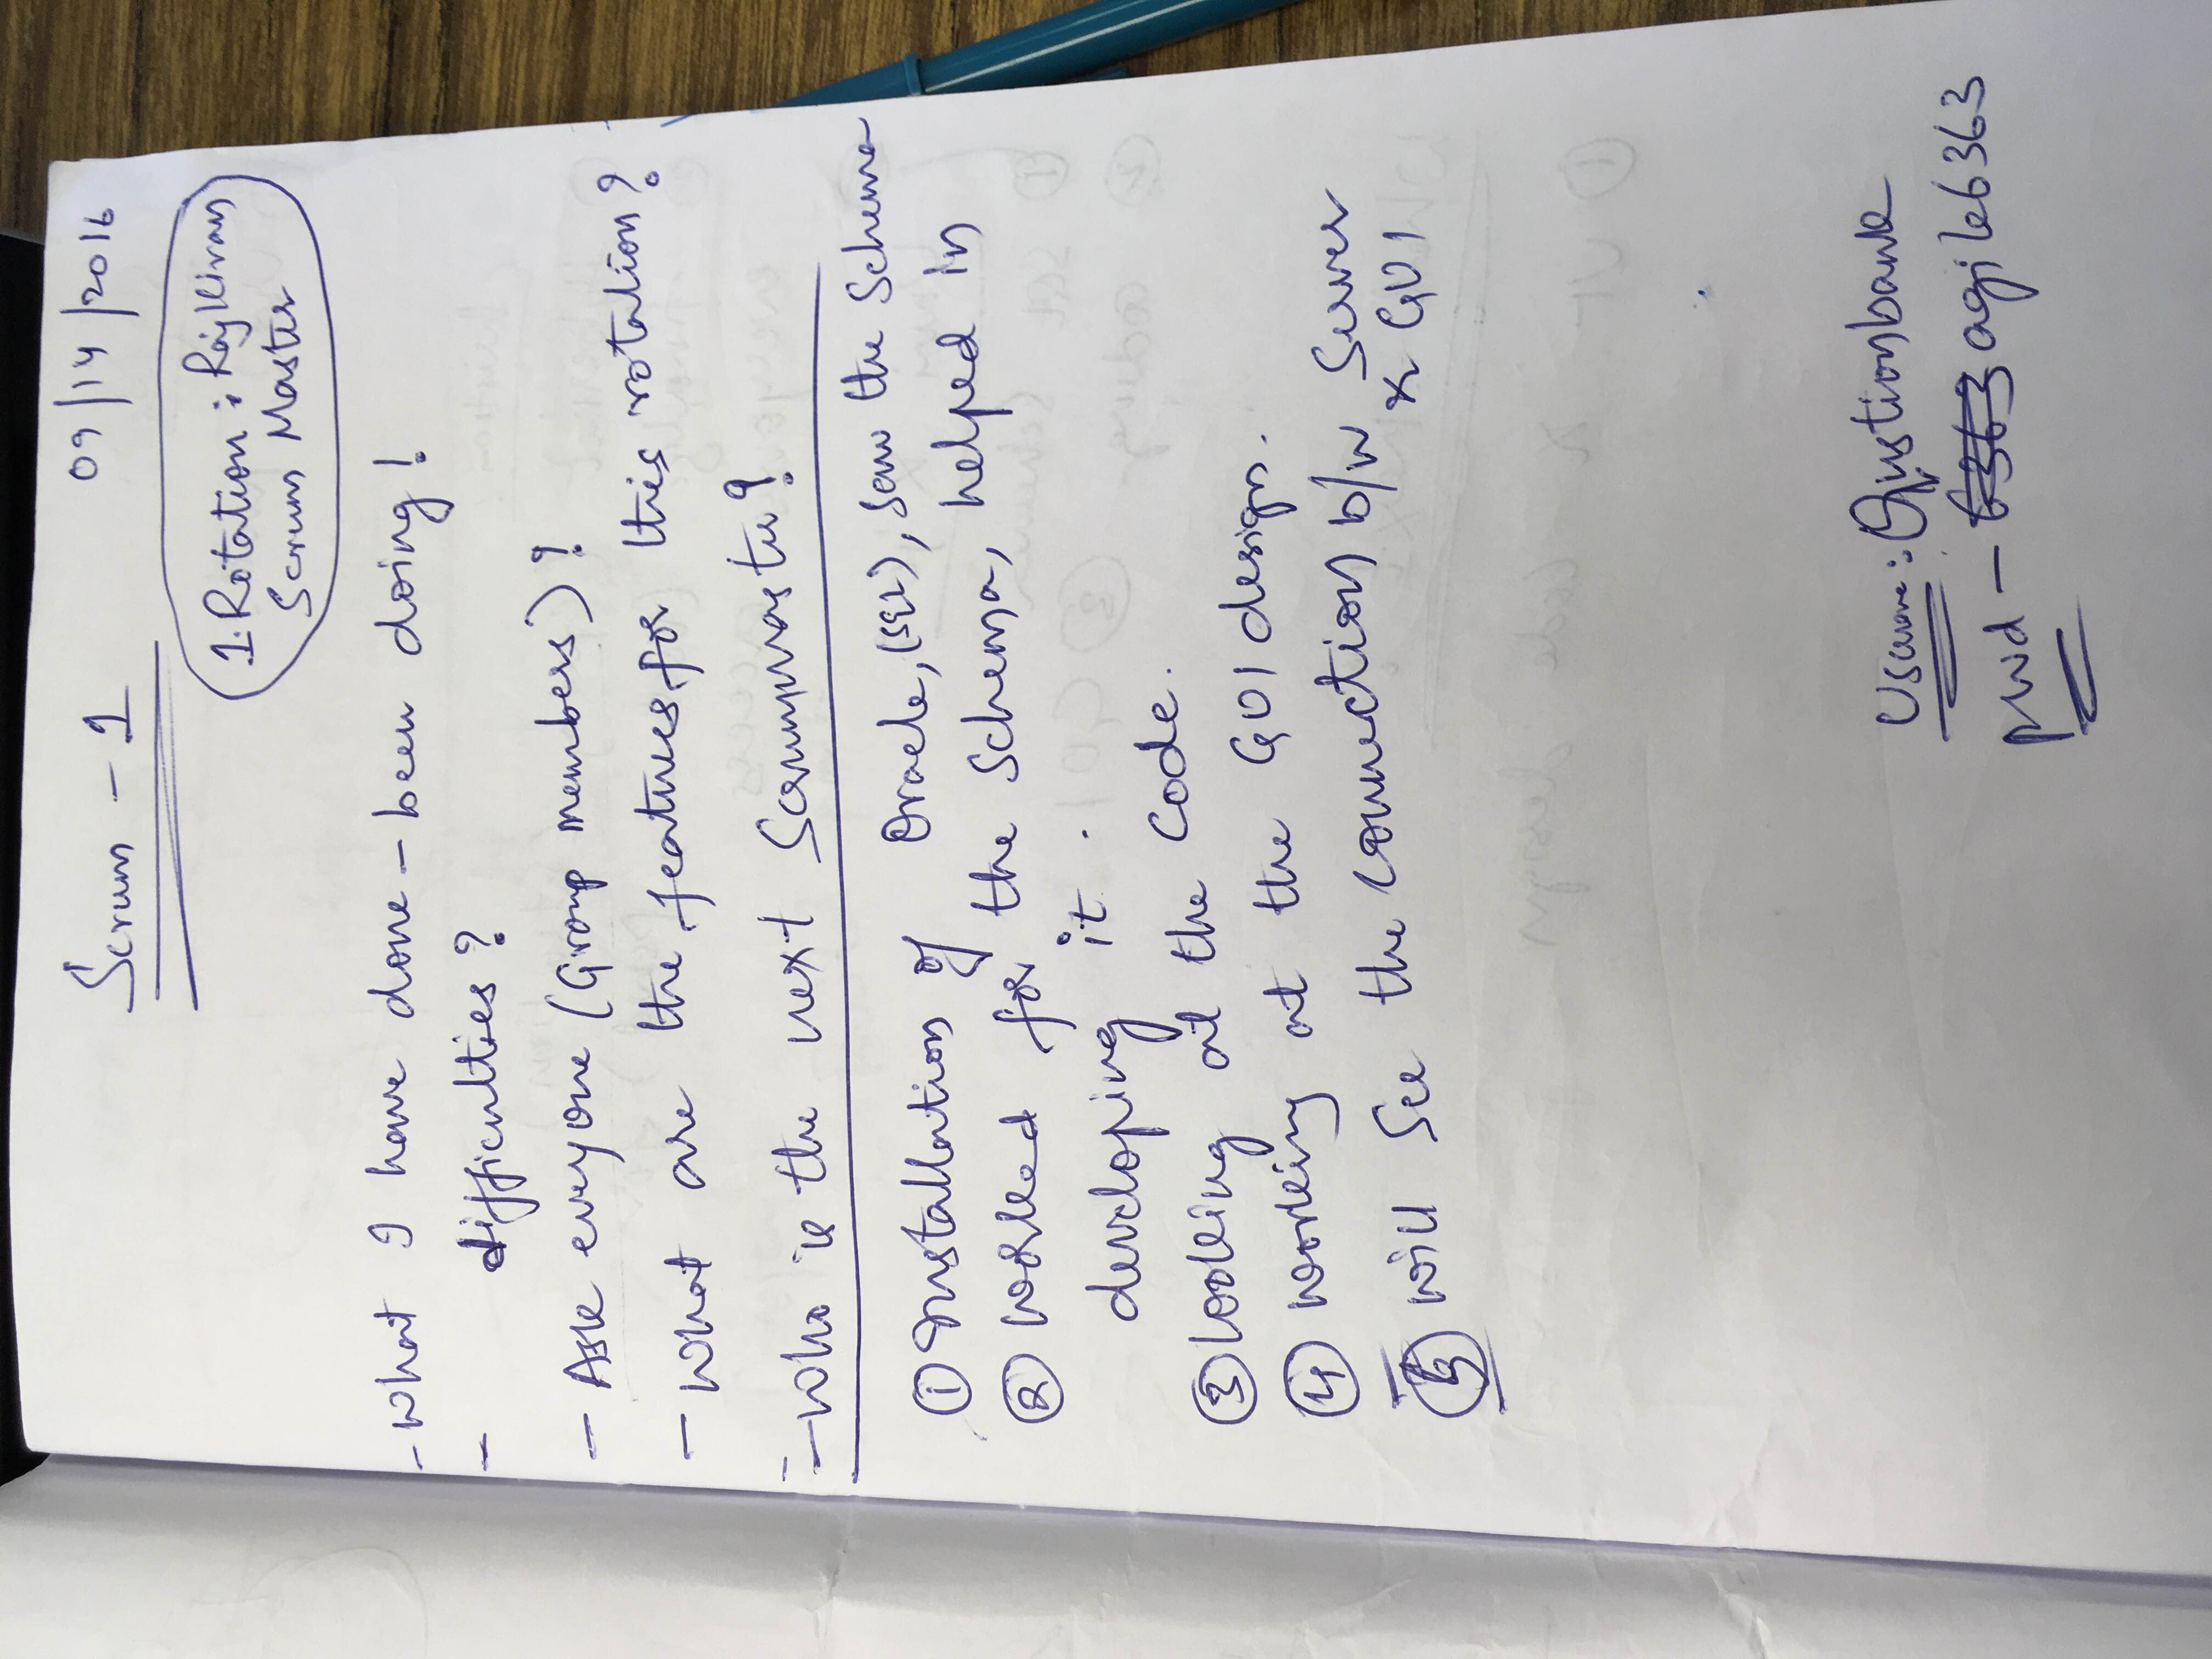 Scrum - 1
09/14/2016
1. Rotation : RajKiran
Scrum Master
- What I have done - been doing!
- difficulties?
- Ask everyone (Group members)?
- What are the features for this rotation?
- Who is the next Scrummaster?
① Installation of Oracle, (SQL), saw the Schema
② Worked for the Schema, helped in
developing it.
③ looking at the Code.
④ Working at the GUI design.
⑤ Will See the Connection b/w Server
& GUI
: Qustionbank
pwd - 6363 agile6363